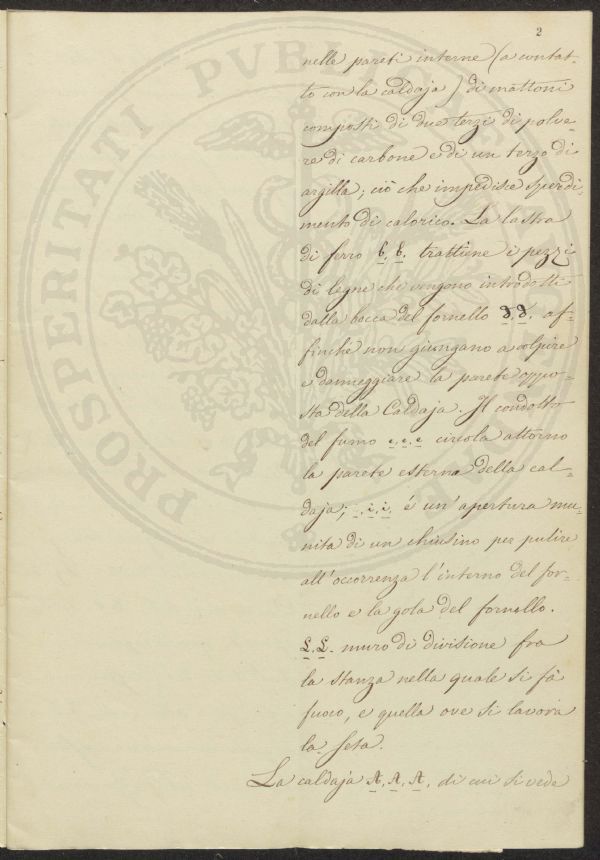 2
nelle pareti interne (a contat-
to con la caldaja) di mattoni
composti di due terzi di polve-
re di carbone e di un terzo di
argilla; ciò che impedisce sperdi-
mento di calorico. La lastra
di ferro b. b. trattiene i pezzi
di legne che vengono introdotti
dalla bocca del fornello d. d. af-
finchè non giungano a colpire
e danneggiare la parete oppo-
sta della Caldaja. Il condotto
del fumo e. e. e circola attorno
la parete esterna della cal-
daja; i. i. é un' apertura mu-
nita di un chiusino per pulire
all'occorrenza l'interno del for-
nello e la gola del fornello.
L. L. muro di divisione fra
la stanza nella quale si fà
fuoco, e quella ove si lavora
la seta.
La caldaja A. A. A. di cui si vede
PROSPERITATI PVBLICAE